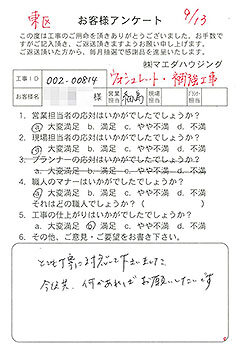 東区
お客様アンケート
9/13
この度は工事のご用命を頂きありがとうございました。お手数で
すがご記入頂き、ご返送頂きますようお願い申し上げます。
ご返送頂いた方から、毎月抽選で感謝品を進呈いたします。
㈱マエダハウジング
工事ID 002-00814 ウォシュレット・樹脂工事
お客様名 様 営業担当 和島 現場担当
1. 営業担当者の応対はいかがでしたでしょうか?
a. 大変満足 b. 満足 c. やや不満 d. 不満
2. 現場担当者の応対はいかがでしたでしょうか?
a. 大変満足 b. 満足 c. やや不満 d. 不満
3. プランナーの応対はいかがでしたでしょうか?
a. 大変満足 b. 満足 c. やや不満 d. 不満
4. 職人のマナーはいかがでしたでしょうか?
a. 大変満足 b. 満足 c. やや不満 d. 不満
それはどの職人でしょうか?( )
5. 工事の仕上がりはいかがでしたでしょうか?
a. 大変満足 b. 満足 c. やや不満 d. 不満
6. その他、ご意見・ご要望をお書き下さい。
とても丁寧に対応して下さいました。
今後共、何かあればお願いしたいです